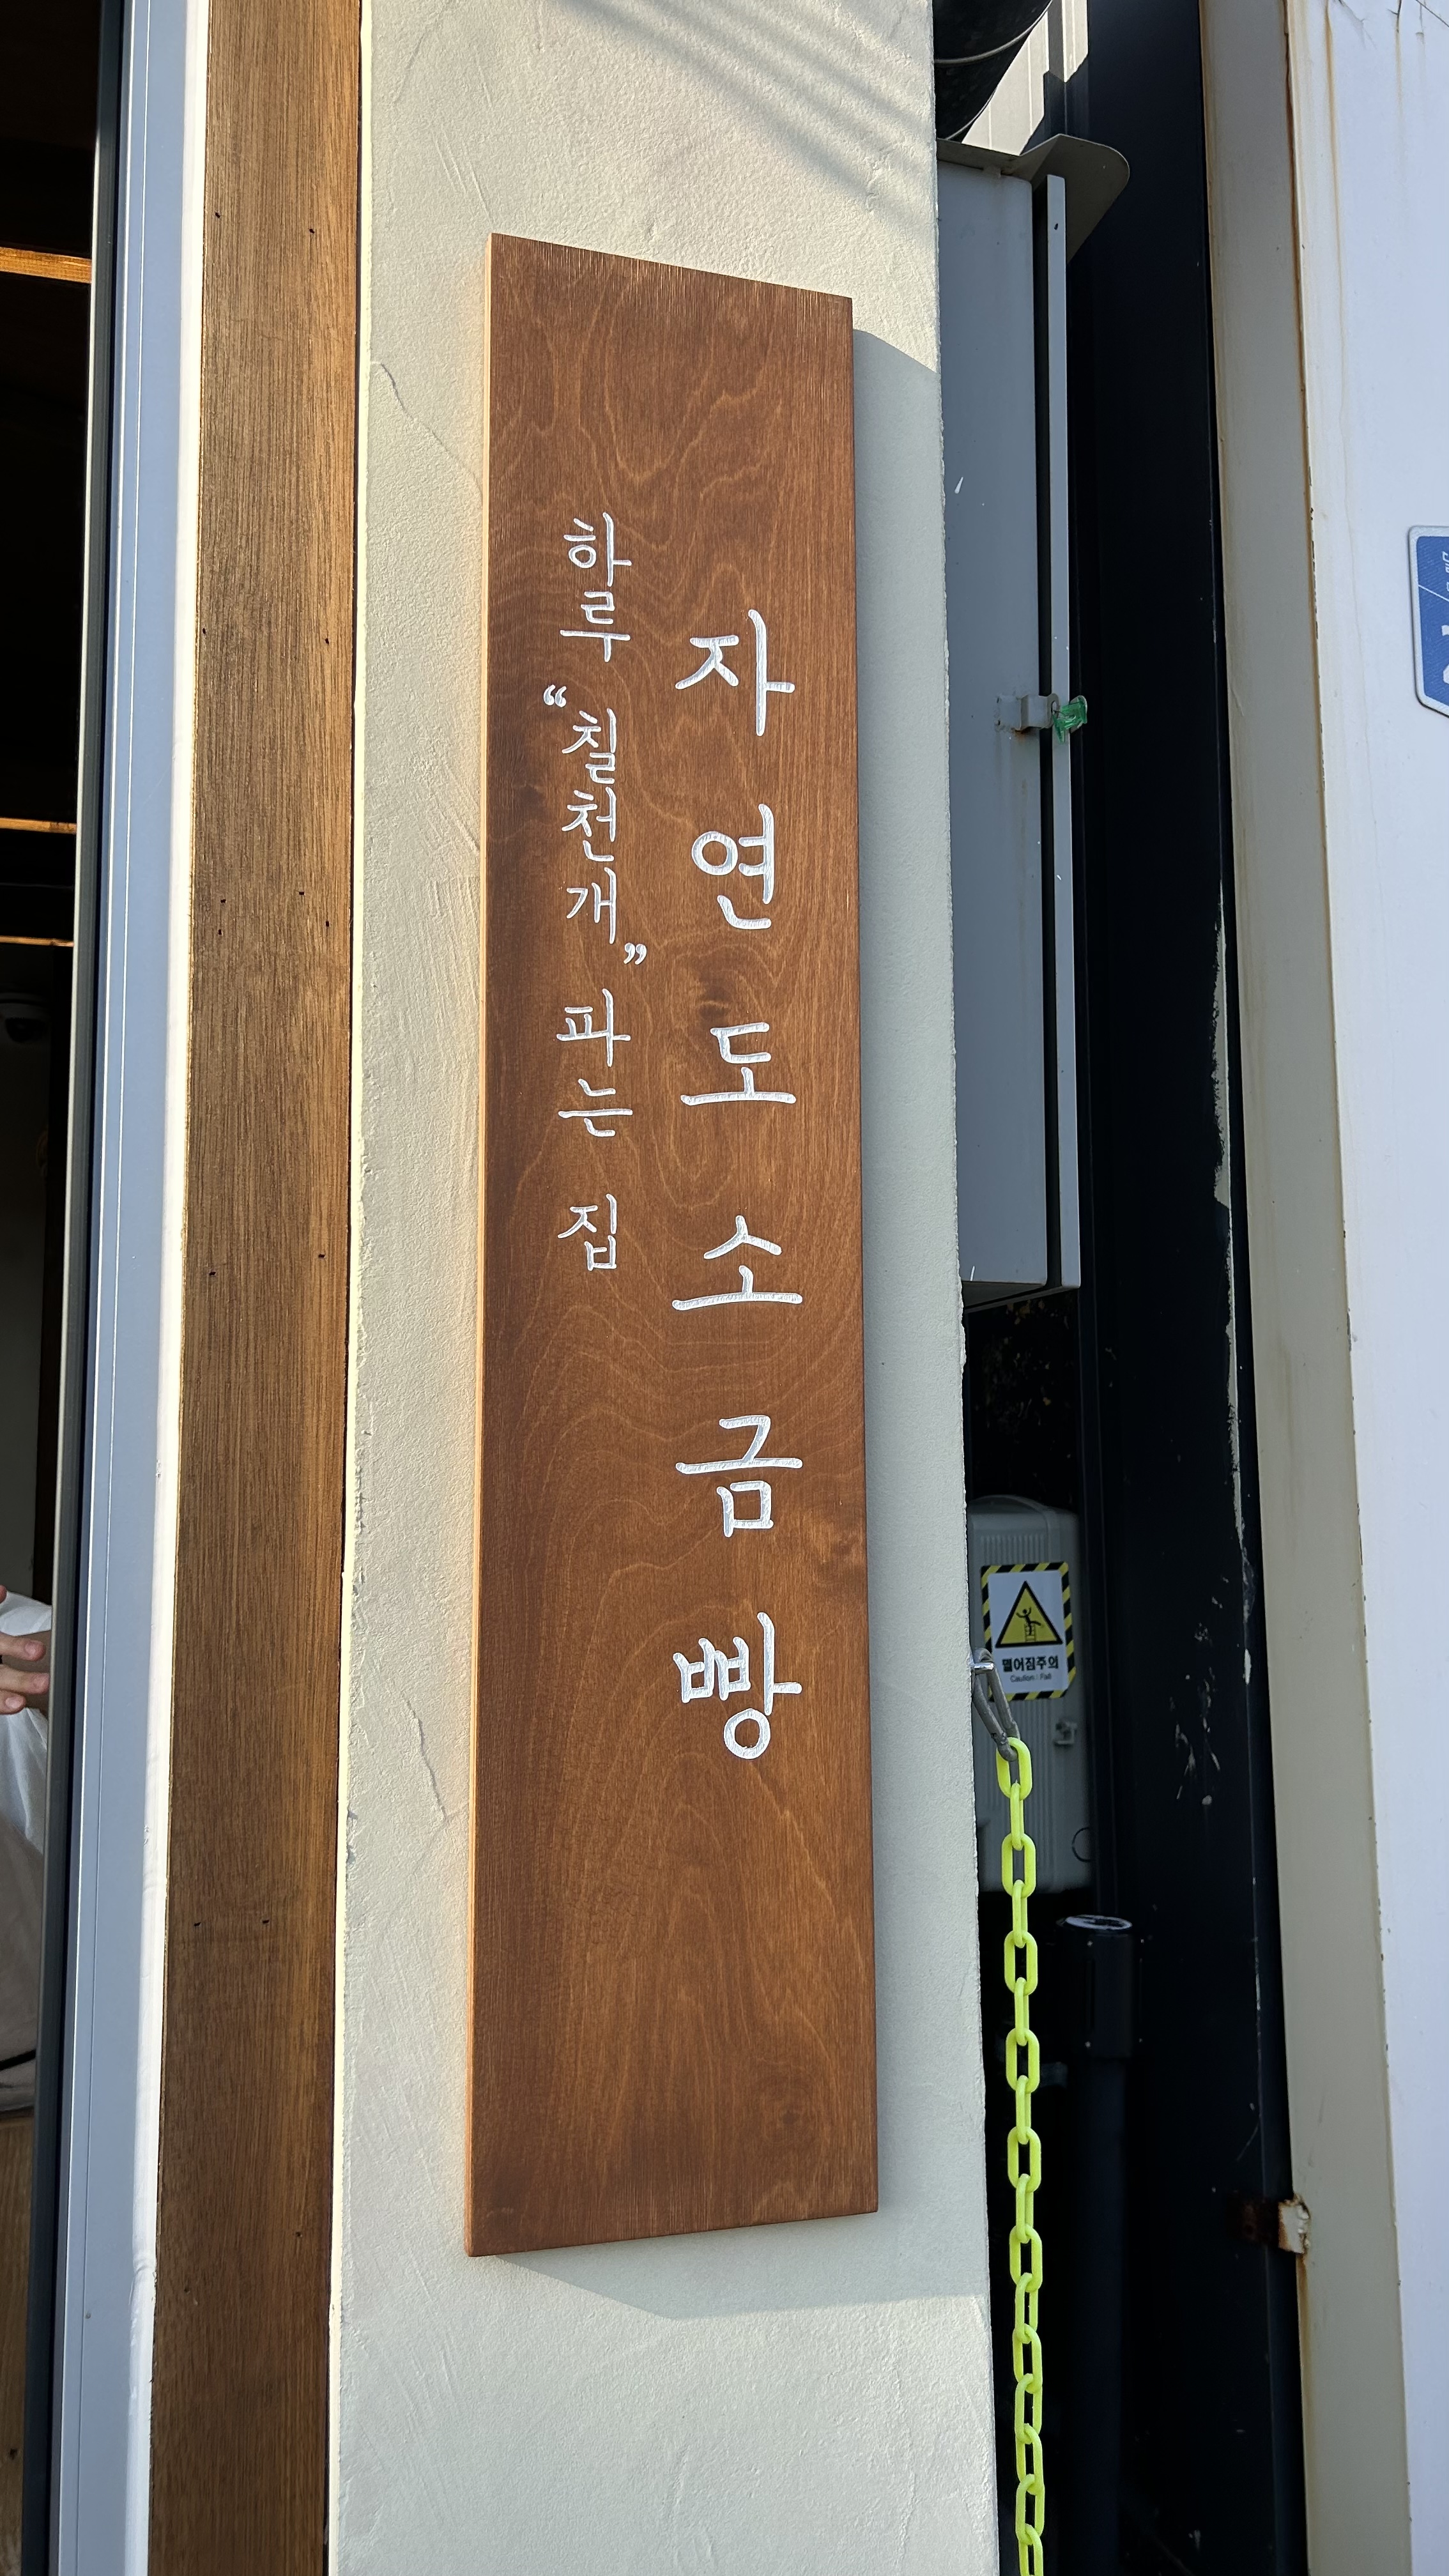 자연도소금빵
하루 “칠천개” 파는 집
떨어짐주의
Caution / Fall